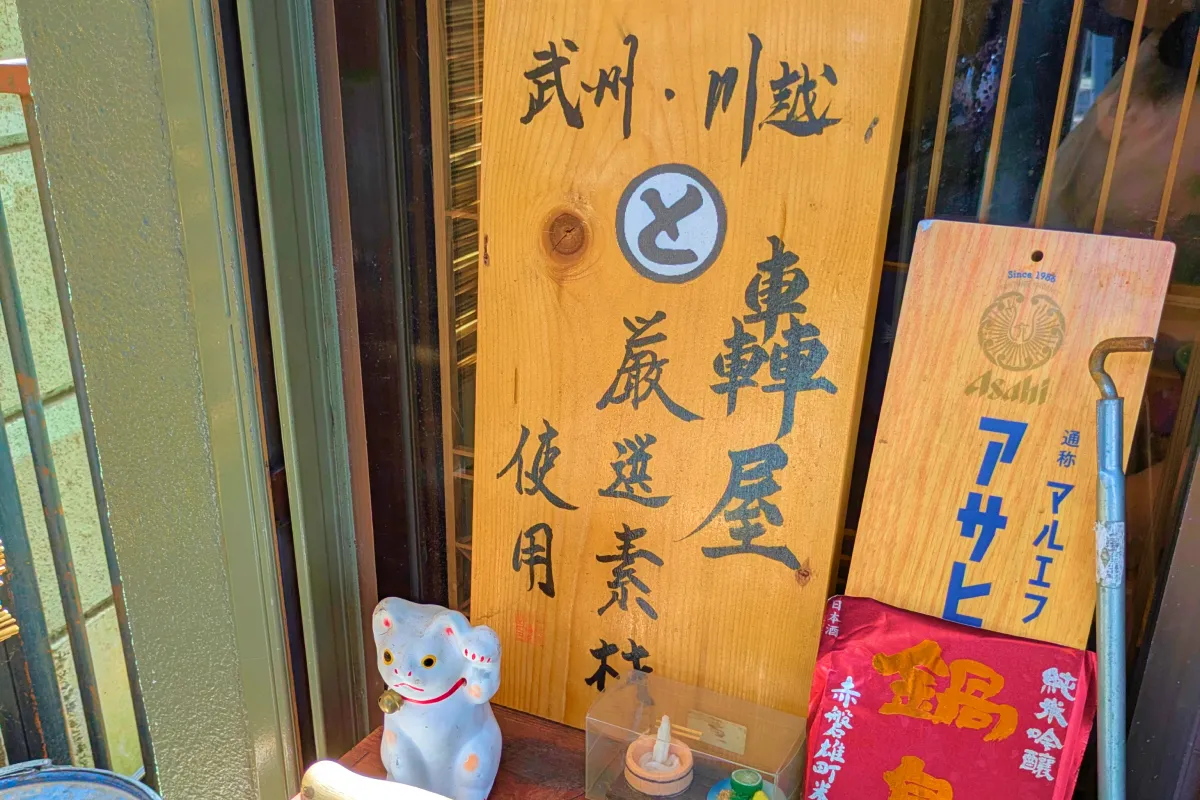 武州・川越
と
轟屋
厳選素材
使用
Since 1986
Asahi
通称
マルエフ
アサヒ
日本酒
純米吟醸
鍋島
赤磐雄町米